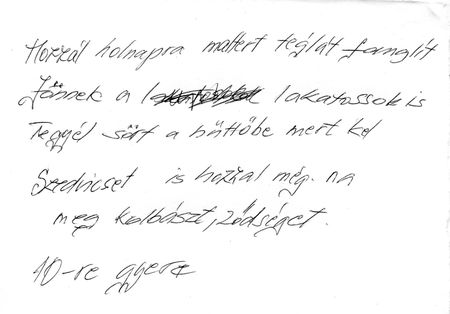 Hozzál holnapra maltert téglát fanglit
Jönnek a lakatossok is
Tegyél sört a hűttőbe mert kel
Szedvicset is hozzal még. na
meg kolbászt, ződséget.
10-re gyere